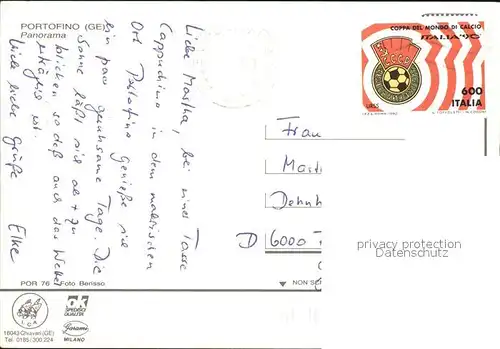 PORTOFINO (GE)
Panorama
Liebe Martha, bei einer Tasse
Cappuchino in dem malerischen
Ort Portofino genieße ich
ein paar geruhsame Tage. Die
Sonne läßt sich ab + zu
blicken so daß auch das Wetter
erträglich ist.
Viele liebe Grüße Elke
POR 76 Foto Berisso
L.C.A.
16043 Chiavari (GE)
Tel. 0185/300.224
OK
SPECIALE
QUALITÀ
Garami
MILANO
COPPA DEL MONDO DI CALCIO
ITALIA '90
CCCP
URSS
600
ITALIA
Frau
D 6000
NON
privacy protection
Datenschutz